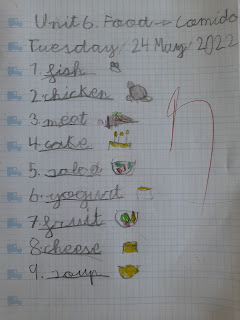 Unit 6. Food → Comida
Tuesday 24 May 2022
1. fish
2. chicken
3. meat
4. cake
5. salad
6. yogurt
7. fruit
8. cheese
9. soup